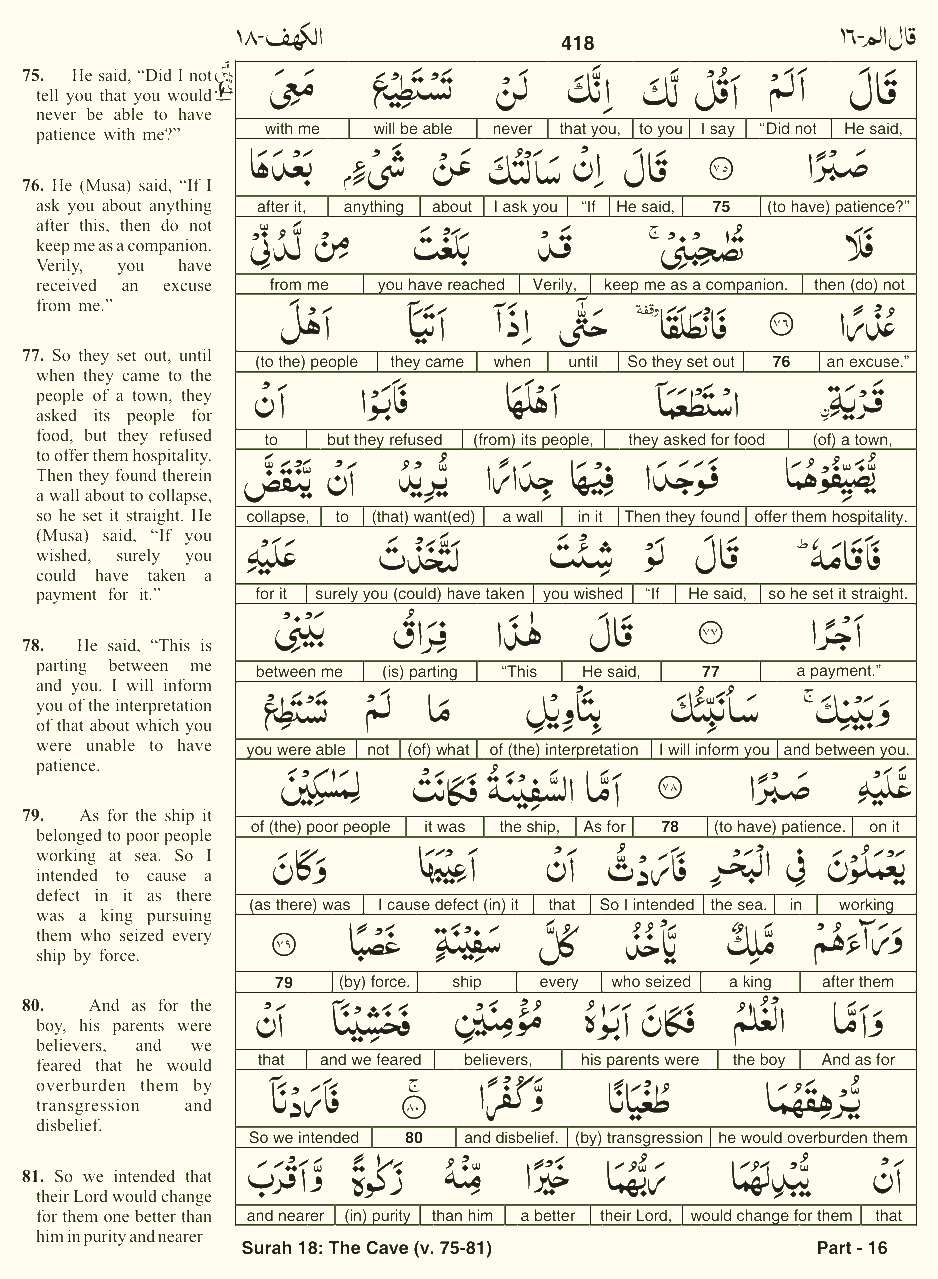 الكهف-١٨
418
قال الم-١٦
75. He said, “Did I not
tell you that you would
never be able to have
patience with me?”
76. He (Musa) said, “If I
ask you about anything
after this, then do not
keep me as a companion.
Verily, you have
received an excuse
from me.”
77. So they set out, until
when they came to the
people of a town, they
asked its people for
food, but they refused
to offer them hospitality.
Then they found therein
a wall about to collapse,
so he set it straight. He
(Musa) said, “If you
wished, surely you
could have taken a
payment for it.”
78. He said, “This is
parting between me
and you. I will inform
you of the interpretation
of that about which you
were unable to have
patience.
79. As for the ship it
belonged to poor people
working at sea. So I
intended to cause a
defect in it as there
was a king pursuing
them who seized every
ship by force.
80. And as for the
boy, his parents were
believers, and we
feared that he would
overburden them by
transgression and
disbelief.
81. So we intended that
their Lord would change
for them one better than
him in purity and nearer
قَالَ اَلَمْ اَقُلْ لَّكَ اِنَّكَ لَنْ تَسْتَطِيْعَ مَعِىَ
with me will be able never that you, to you I say “Did not He said,
صَبْرًا ٧٥ قَالَ اِنْ سَاَلْتُكَ عَنْ شَىْءٍۭ بَعْدَهَا
after it, anything about I ask you “If He said, 75 (to have) patience?”
فَلَا تُصٰحِبْنِىْ ۚ قَدْ بَلَغْتَ مِنْ لَّدُنِّىْ
from me you have reached Verily, keep me as a companion. then (do) not
عُذْرًا ٧٦ فَانْطَلَقَا وقفة حَتّٰٓى اِذَآ اَتَيَآ اَهْلَ
(to the) people they came when until So they set out 76 an excuse.”
قَرْيَةِ ۨ اسْتَطْعَمَآ اَهْلَهَا فَاَبَوْا اَنْ
to but they refused (from) its people, they asked for food (of) a town,
يُّضَيِّفُوْهُمَا فَوَجَدَا فِيْهَا جِدَارًا يُّرِيْدُ اَنْ يَّنْقَضَّ
collapse, to (that) want(ed) a wall in it Then they found offer them hospitality.
فَاَقَامَهٗ ؕ قَالَ لَوْ شِئْتَ لَتَّخَذْتَ عَلَيْهِ
for it surely you (could) have taken you wished “If He said, so he set it straight.
اَجْرًا ٧٧ قَالَ هٰذَا فِرَاقُ بَيْنِىْ
between me (is) parting “This He said, 77 a payment.”
وَبَيْنِكَ ۚ سَاُنَبِّئُكَ بِتَاْوِيْلِ مَا لَمْ تَسْتَطِعْ
you were able not (of) what of (the) interpretation I will inform you and between you.
عَّلَيْهِ صَبْرًا ٧٨ اَمَّا السَّفِيْنَةُ فَكَانَتْ لِمَسٰكِيْنَ
of (the) poor people it was the ship, As for 78 (to have) patience. on it
يَعْمَلُوْنَ فِى الْبَحْرِ فَاَرَدْتُّ اَنْ اَعِيْبَهَا وَكَانَ
(as there) was I cause defect (in) it that So I intended the sea. in working
وَرَآءَهُمْ مَّلِكٌ يَّاْخُذُ كُلَّ سَفِيْنَةٍ غَصْبًا ٧٩
79 (by) force. ship every who seized a king after them
وَاَمَّا الْغُلٰمُ فَكَانَ اَبَوٰهُ مُؤْمِنَيْنِ فَخَشِيْنَآ اَنْ
that and we feared believers, his parents were the boy And as for
يُّرْهِقَهُمَا طُغْيَانًا وَّكُفْرًا ۚ ٨٠ فَاَرَدْنَآ
So we intended 80 and disbelief. (by) transgression he would overburden them
اَنْ يُّبْدِلَهُمَا رَبُّهُمَا خَيْرًا مِّنْهُ زَكٰوةً وَّاَقْرَبَ
and nearer (in) purity than him a better their Lord, would change for them that
Surah 18: The Cave (v. 75-81)
Part - 16